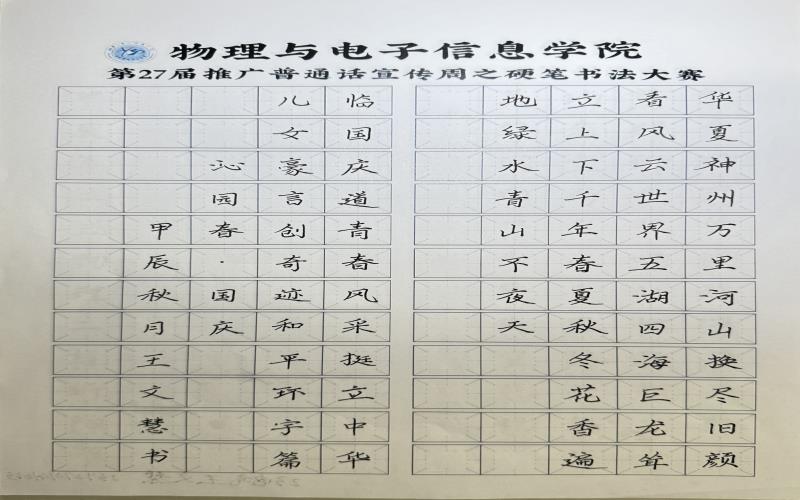 物理与电子信息学院
第27届推广普通话宣传周之硬笔书法大赛
华夏神州万里河山换尽旧颜
看风云世界五湖四海巨龙耸
立上下千年春夏秋冬花香遍
地绿水青山不夜天
临国庆道青春风采挺立中华
儿女豪言创奇迹和平环宇篇
沁园春·国庆
甲辰秋月王文慧书